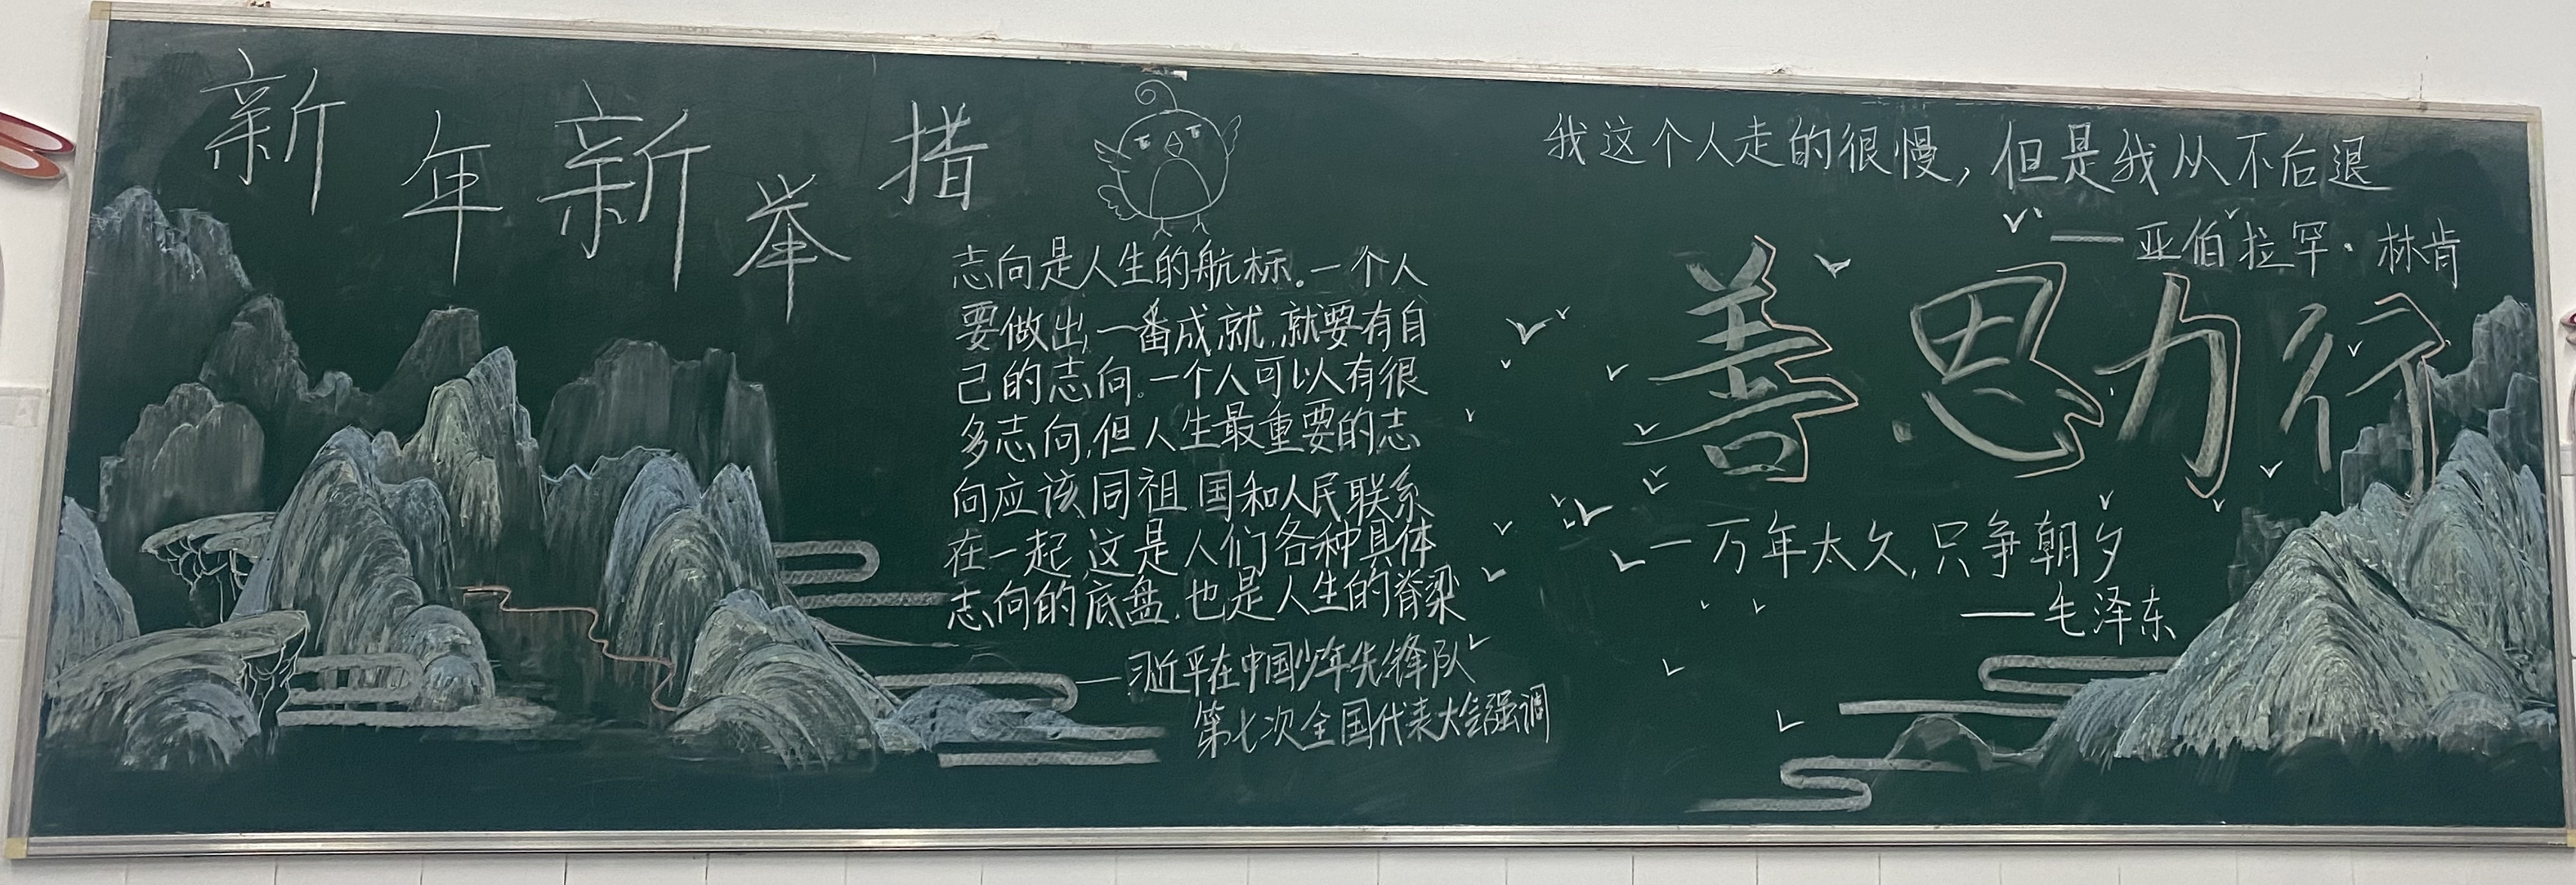 新年新举措
志向是人生的航标。一个人
要做出一番成就,就要有自
己的志向。一个人可以有很
多志向,但人生最重要的志
向应该同祖国和人民联系
在一起,这是人们各种具体
志向的底盘,也是人生的脊梁
——习近平在中国少年先锋队
第七次全国代表大会强调
我这个人走的很慢,但是我从不后退
——亚伯拉罕·林肯
善思力行
一万年太久,只争朝夕
——毛泽东